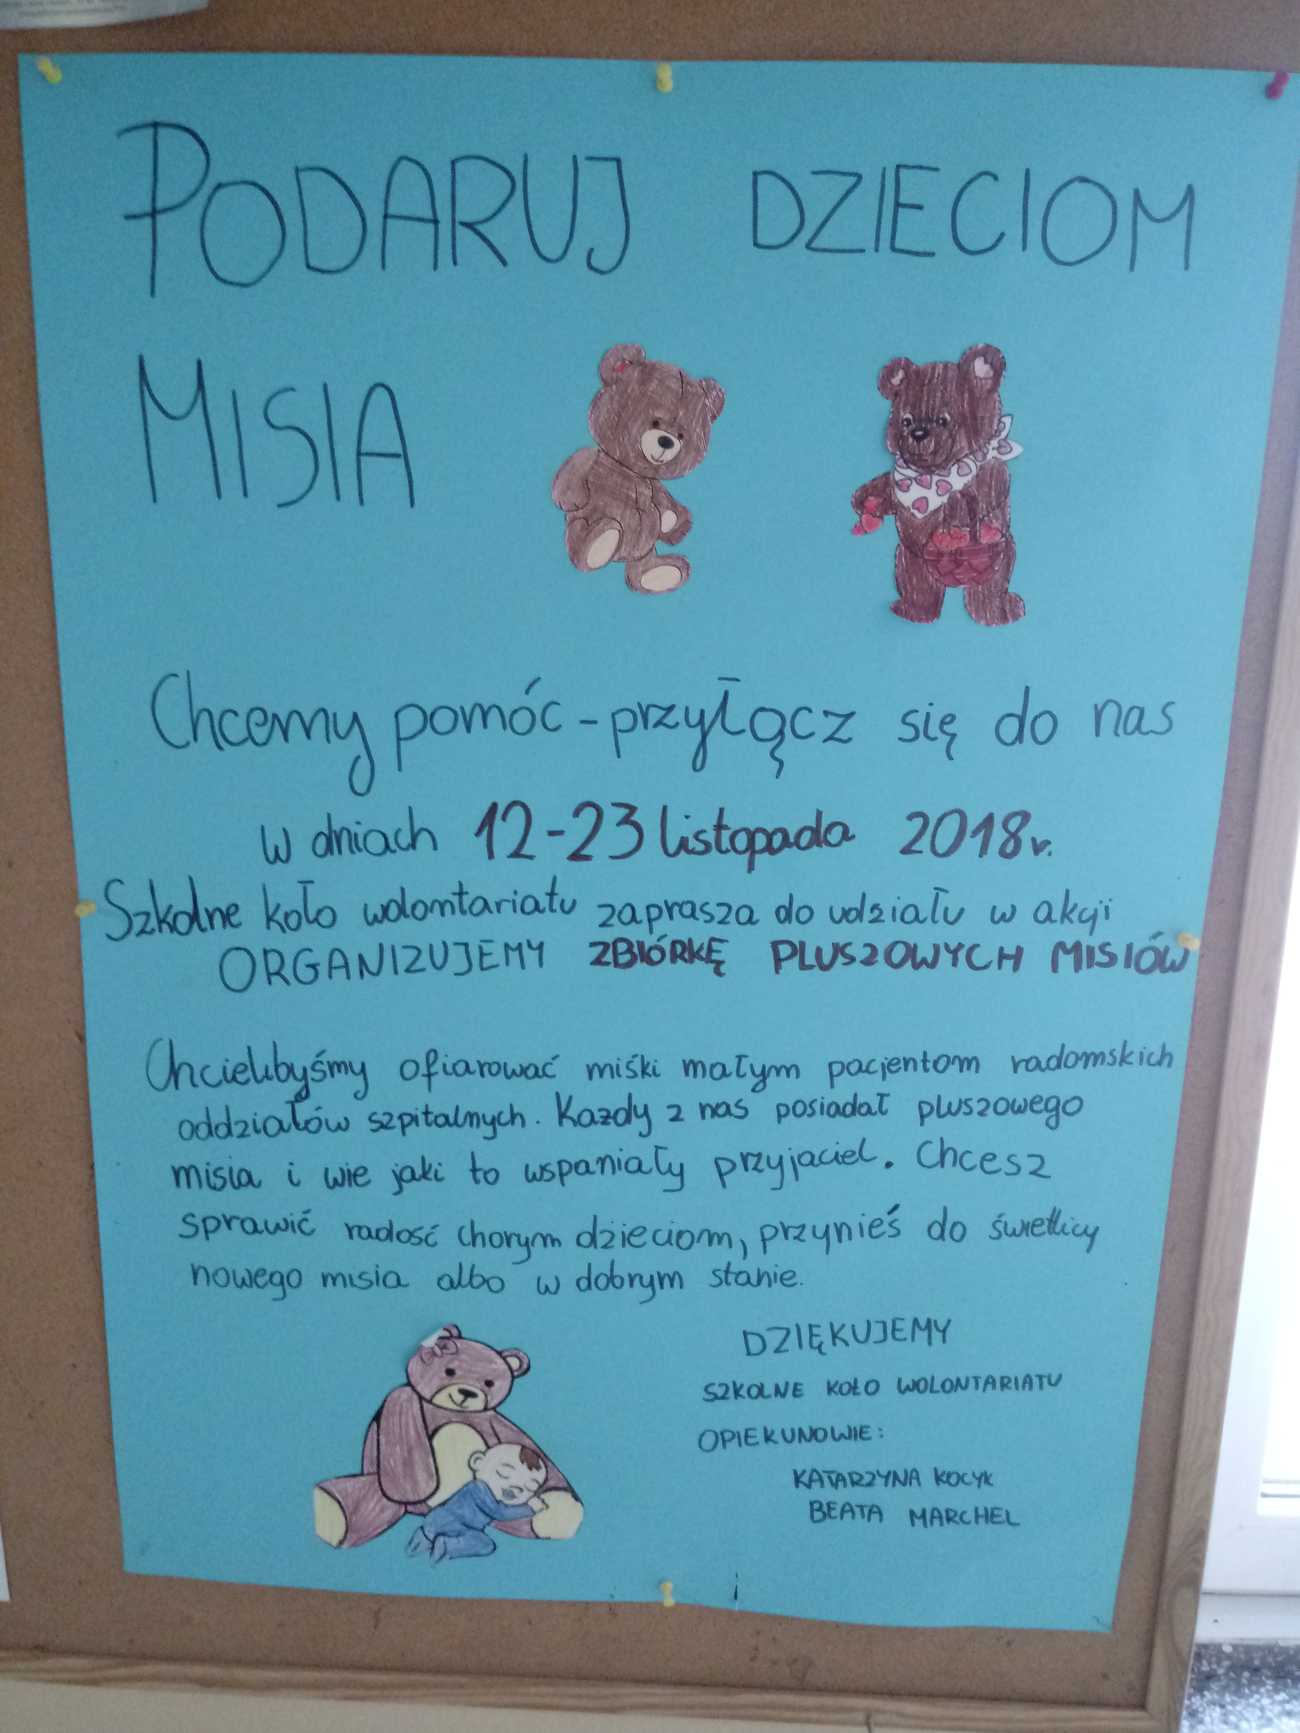 PODARUJ DZIECIOM
MISIA
Chcemy pomóc - przyłącz się do nas
w dniach 12-23 listopada 2018r.
Szkolne koło wolontariatu zaprasza do udziału w akcji
ORGANIZUJEMY ZBIÓRKĘ PLUSZOWYCH MISIÓW
Chcielibyśmy ofiarować miśki małym pacjentom radomskich
oddziałów szpitalnych. Każdy z nas posiadał pluszowego
misia i wie jaki to wspaniały przyjaciel. Chcesz
sprawić radość chorym dzieciom, przynieś do świetlicy
nowego misia albo w dobrym stanie.
DZIĘKUJEMY
SZKOLNE KOŁO WOLONTARIATU
OPIEKUNOWIE:
KATARZYNA KOCYK
BEATA MARCHEL